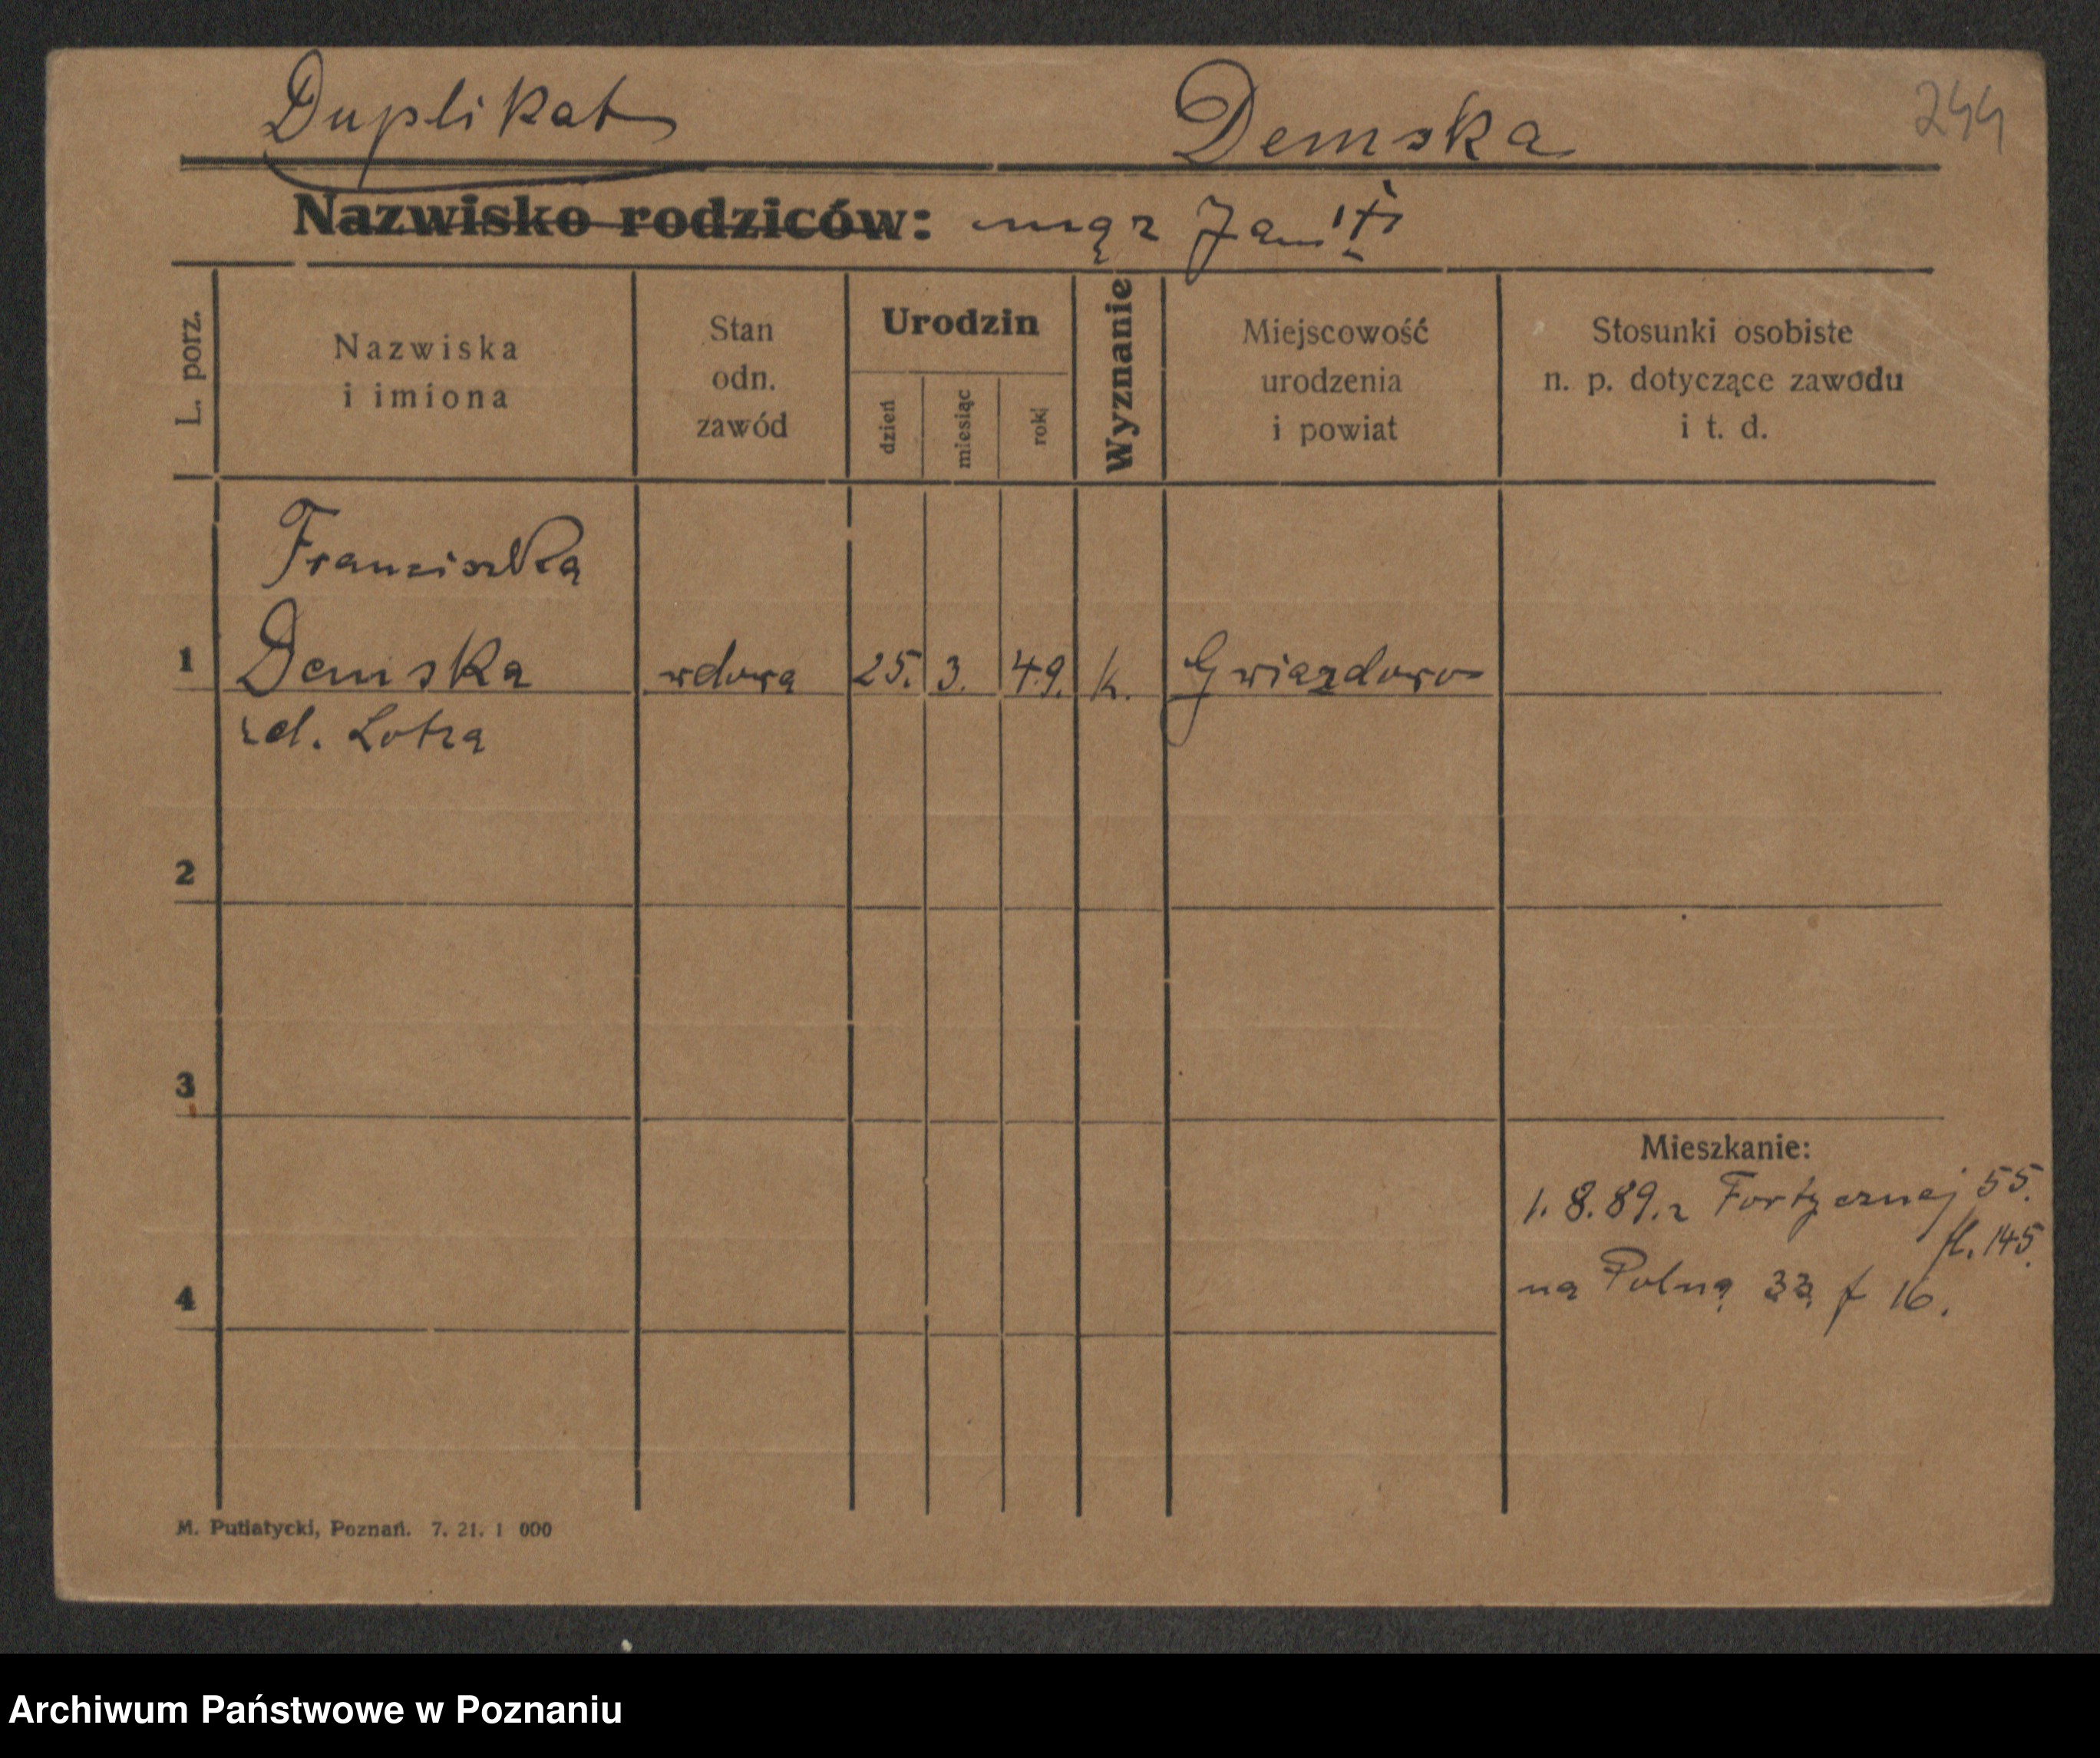 Duplikat
Demska
244
Nazwisko rodziców: mąż Jan
L. porz.
Nazwiska
i imiona
Stan
odn.
zawód
Urodzin
dzień
miesiąc
rok
Wyznanie
Miejscowość
urodzenia
i powiat
Stosunki osobiste
n. p. dotyczące zawodu
i t. d.
Franciszka
1 Demska wdowa 25. 3. 49. k. Gwiazdowo
zd. Lotza
2
3
Mieszkanie:
1. 8. 89. z Fortecznej 55.
fl. 145.
4 na Polną 33 f 16.
M. Putiatycki, Poznań. 7. 21. 1 000
Archiwum Państwowe w Poznaniu